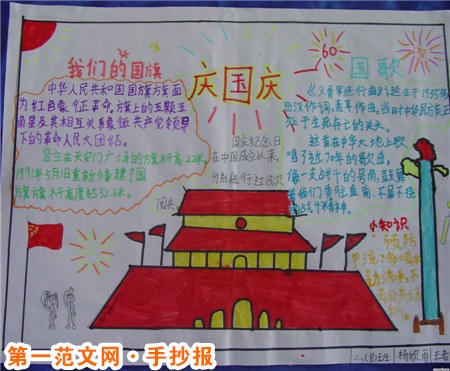 我们的国旗
中华人民共和国国旗旗面
为红色象征革命。旗上的五颗五
角星及其相互关系象征共产党领导
下的革命人民大团结。
竖立在天安门广场的旗杆高22米
1991年5月1日重新修建了国
旗旗杆高度达32.6米。
庆国庆
国庆纪念日
在中国成立以来,
分别进行过13次
60
国歌
《义勇军进行曲》诞生于1935年
田汉作词,聂耳作曲。当时中华民族正
处于生死存亡的关头。
在中华大地上歌
唱了近70年的歌曲。
像一支战斗的号角,鼓舞
着我们勇往直前、不屈不挠
小知识
预防
二(8)班
杨欣雨
第一范文网·手抄报